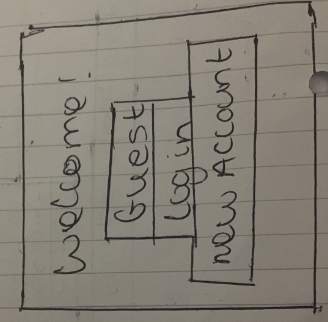 Welcome!
Guest
Login
new Account